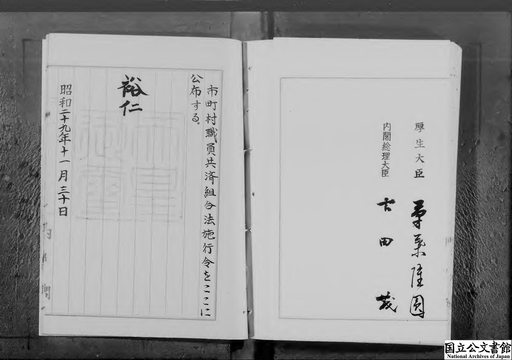 厚生大臣 草葉隆圓
内閣総理大臣 吉田茂
市町村職員共済組合法施行令をここに
公布する。
裕仁
昭和二十九年十一月三十日
国立公文書館
National Archives of Japan